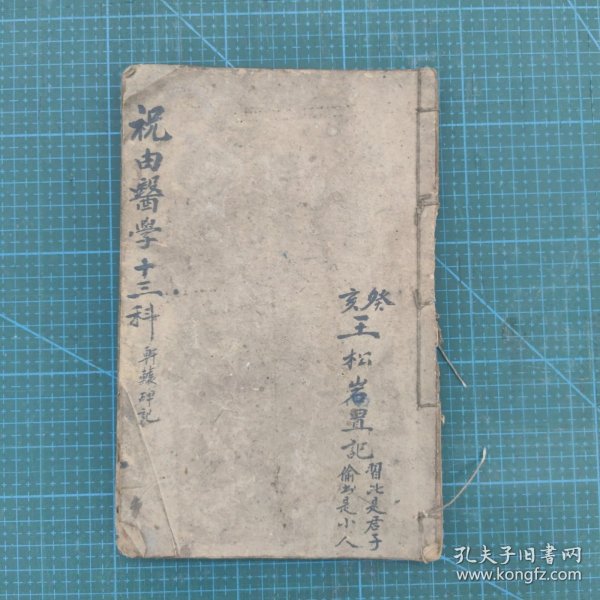 祝由醫學十三科
軒轅碑記
癸亥
王松岩置記
習此是君子
偷此是小人
孔夫子旧书网
www.kongfz.com